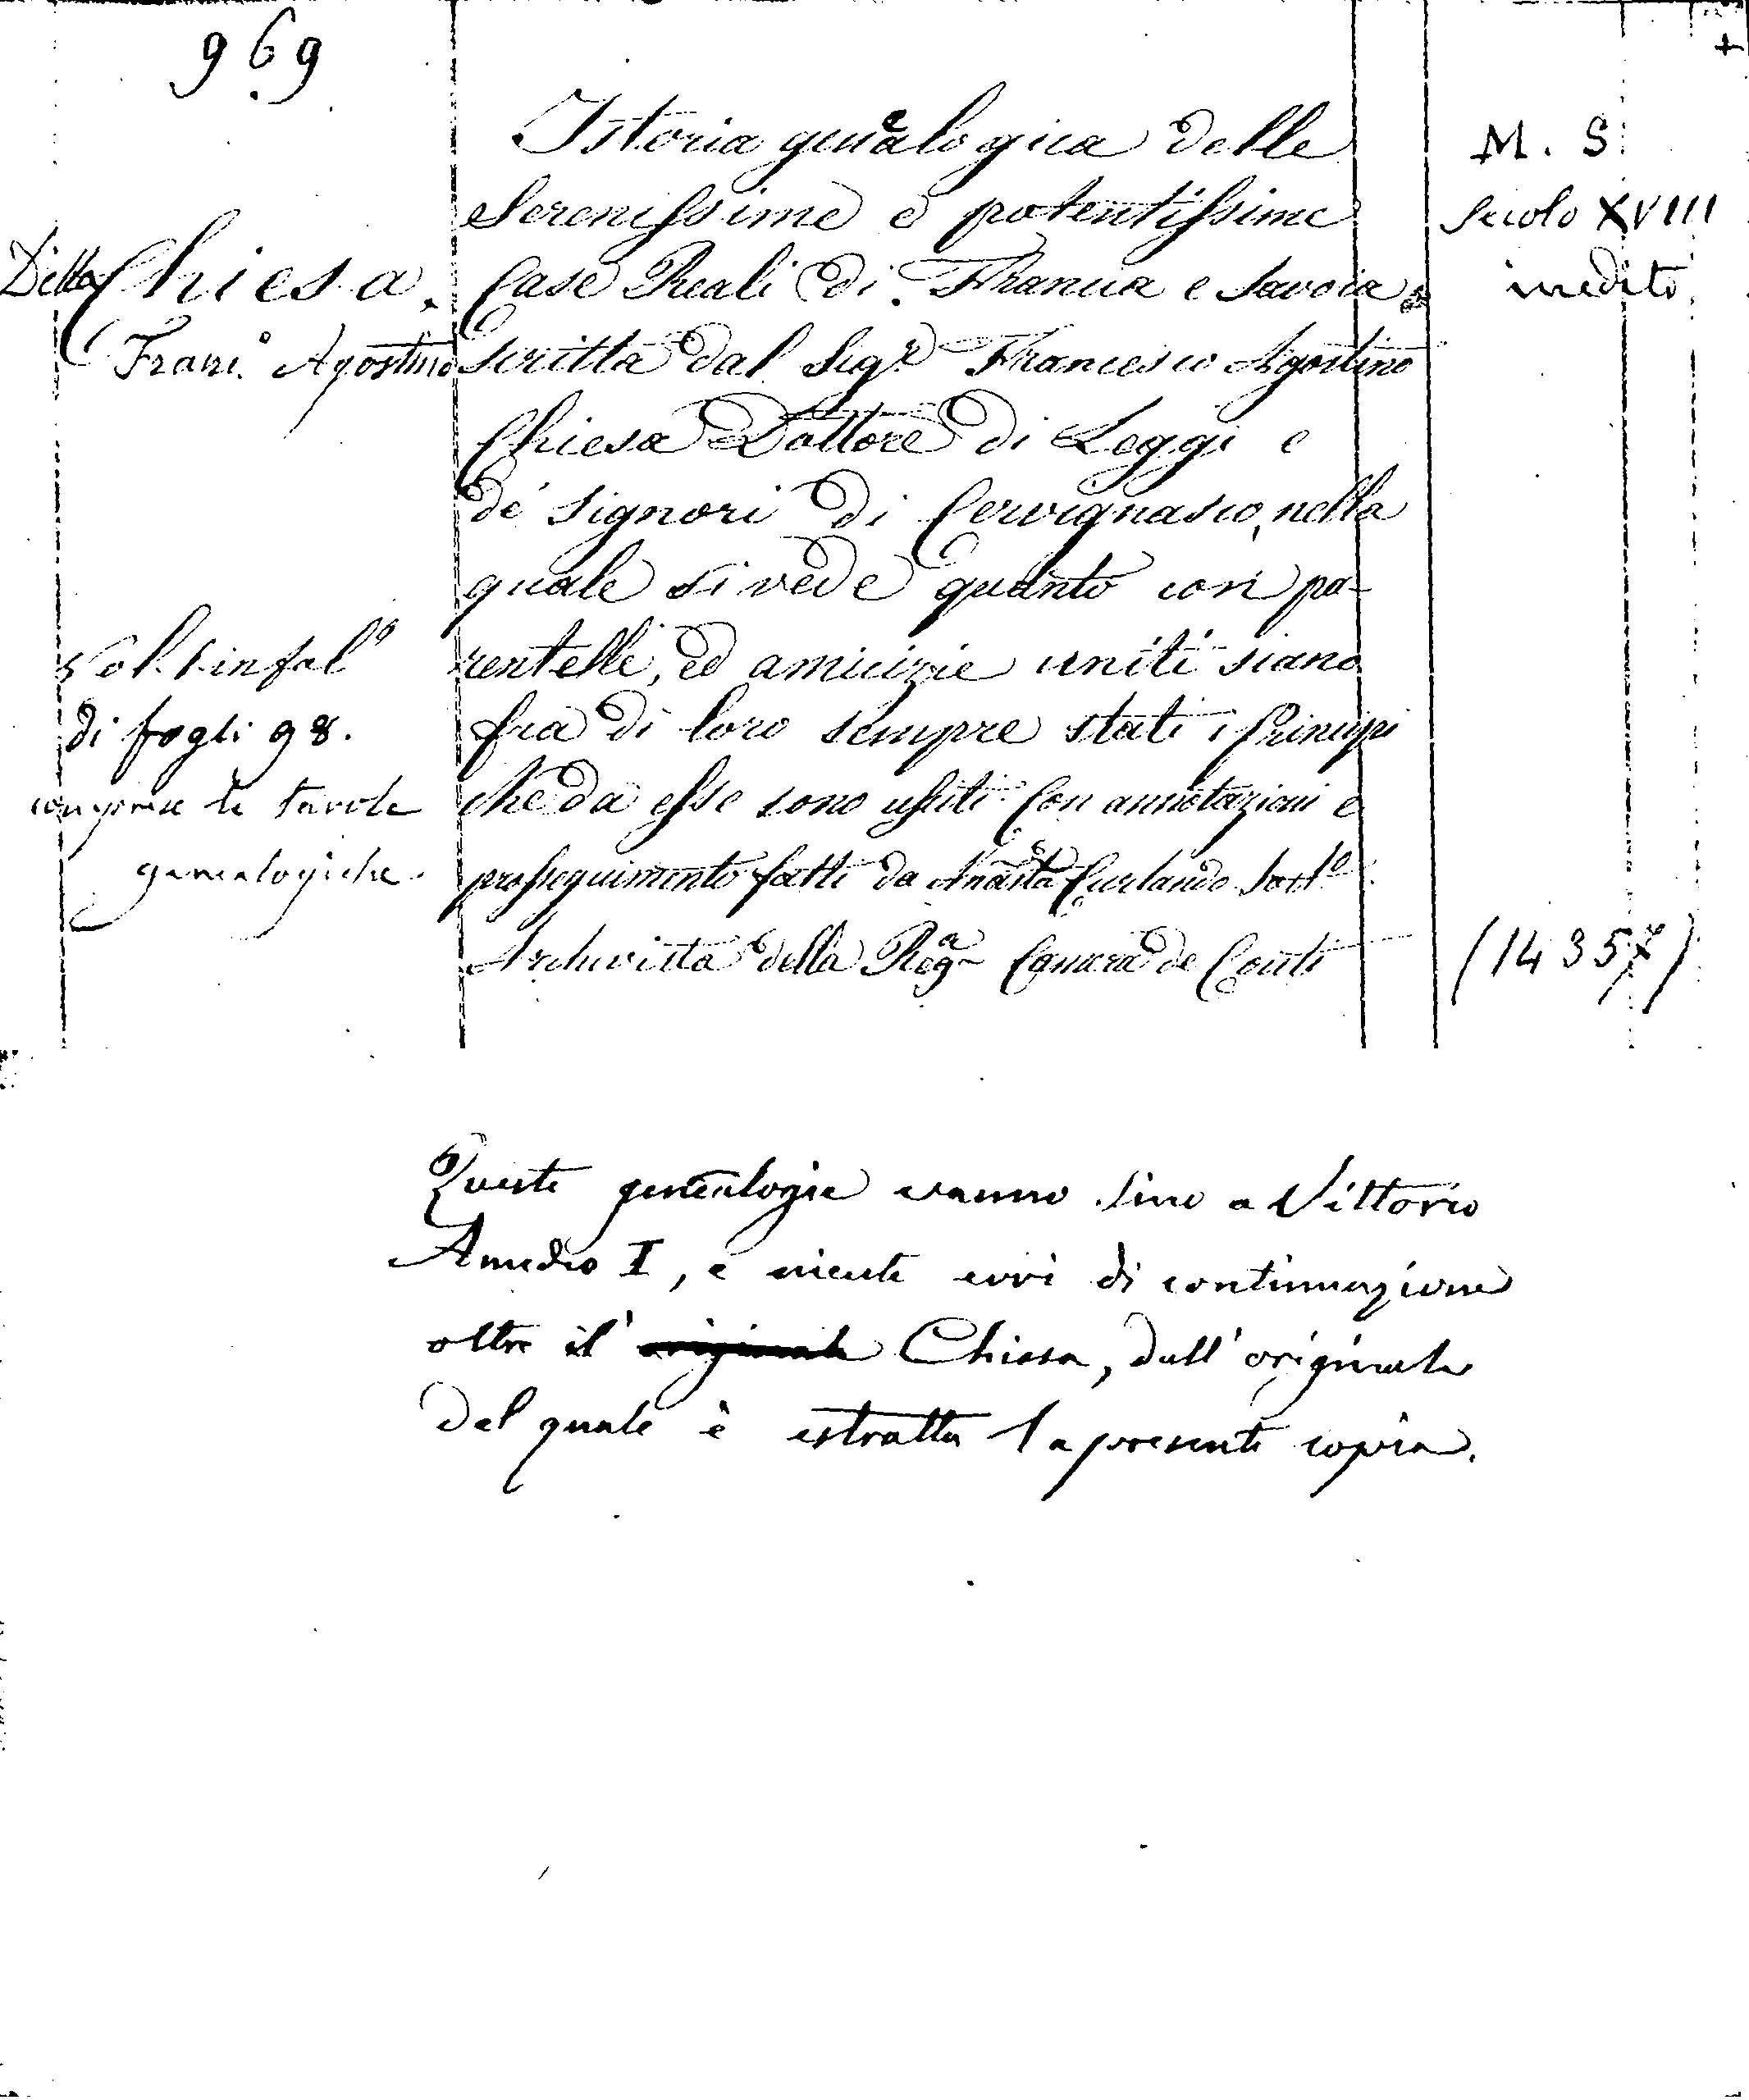 969
Della Chiesa.
Franc.º Agostino
Vol. 1 in fol.º
di fogli 98.
comprese le tavole
genealogiche.
Istoria genealogica delle
Serenissime e potentissime
Case Reali di Francia e Savoia
scritta dal Sigr Francesco Agostino
Chiesa Dottore di Leggi e
de' Signori di Cervignasco, nella
quale si vede quanto con pa-
rentelle, ed amicizie uniti siano
fra di loro sempre stati i Principi
che da esse sono usciti. Con annotazioni e
prosseguimento fatti da Curlando
Archivista della Rega Camera de Conti
M. S.
Secolo XVIII
inedito
(14357)
Queste genealogie vanno sino a Vittorio
Amedeo I, e niente evvi di continuazione
oltre il originale Chiesa, dall'originale
del quale è estratta la presente copia.